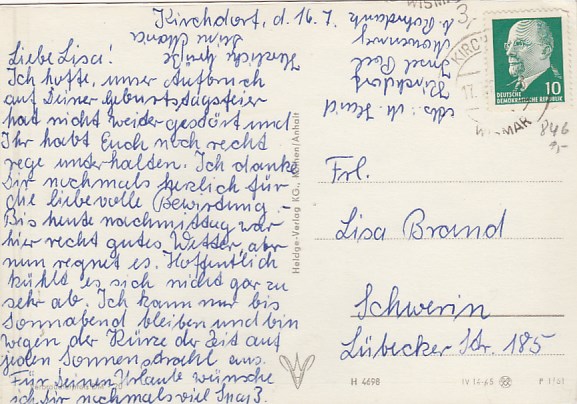 Kirchdorf, d. 16. 7.
Liebe Lisa!
Ich hoffe, unser Aufbruch
auf Deiner Geburtstagsfeier
hat nicht weiter gestört und
Ihr habt Euch noch recht
rege unterhalten. Ich danke
Dir nochmals herzlich für
die liebevolle Bewirtung.-
Bis heute nachmittag war
hier recht gutes Wetter, aber
nun regnet es. Hoffentlich
kühlt es sich nicht gar zu
sehr ab. Ich kann nur bis
Sonnabend bleiben und bin
wegen der Kürze der Zeit auf
jeden Sonnenstrahl aus.
Für Deinen Urlaub wünsche
ich Dir nochmals viel Spaß.
Herzliche Grüße
Deine
Insel Poel
Kirchdorf
Heldge-Verlag KG., Köthen/Anhalt
DEUTSCHE
DEMOKRATISCHE REPUBLIK
10
WISMAR
846
9,-
Frl.
Lisa Brand
Schwerin
Lübecker Str. 185
H 4698
IV 14-65